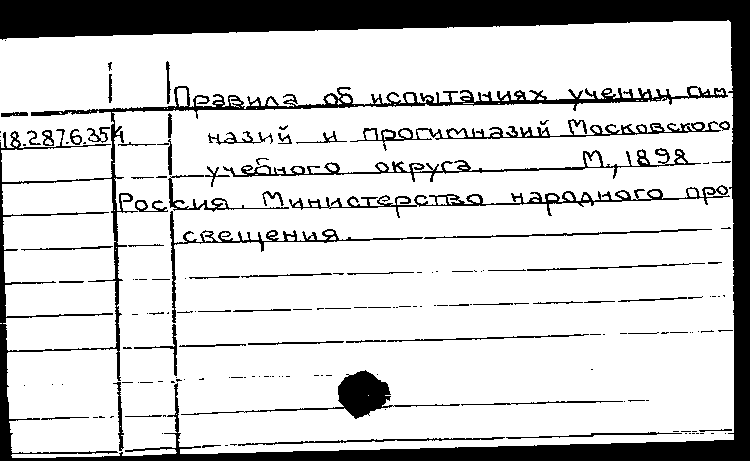 Правила об испытаниях учениц гим-
18.287.6.354. назий и прогимназий Московского
учебного округа. М., 1898
Россия. Министерство народного про-
свещения.